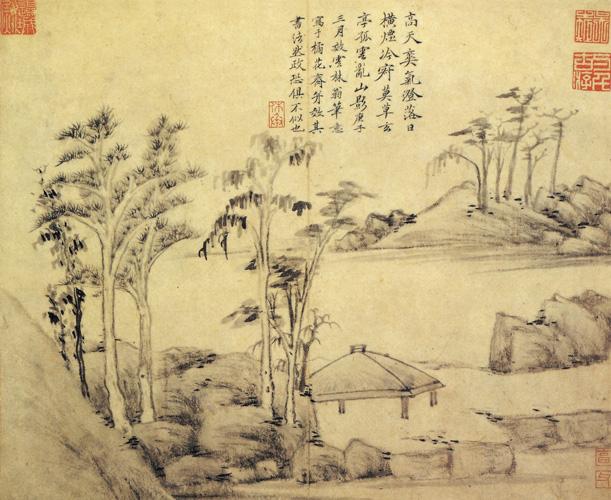 高天爽氣澄落日
橫煙冷寂莫草玄
亭孤雲亂山影庚子
三月放雲林翁筆意
寫于橘花齋并效其
書法然政恐俱不似也